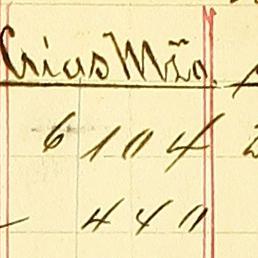 Crias Mão.
6 104
440